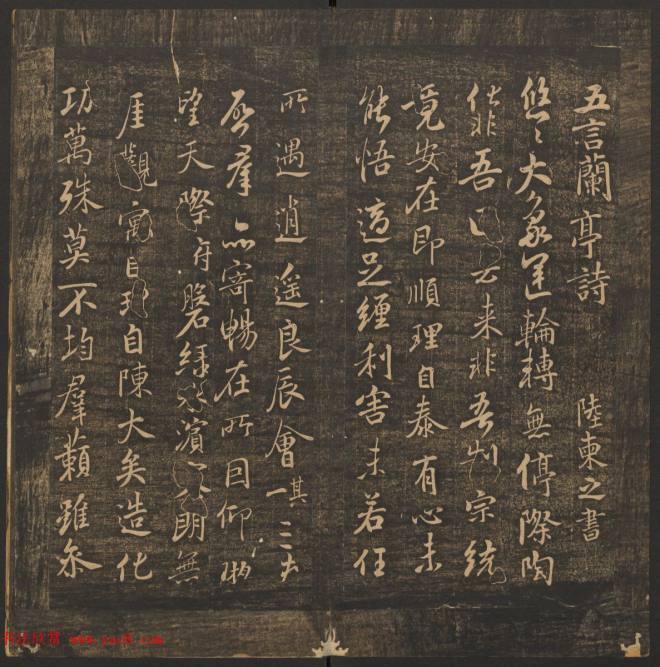 五言蘭亭詩 陸柬之書
悠〻大象運輪轉無停際陶
化非吾因去來非吾制宗統
竟安在即順理自泰有心未
能悟適足纏利害未若任
所遇逍遙良辰會其一三春
啓羣品寄暢在所因仰
望天際俯磐綠水濱寥朗無
厓觀寓目理自陳大矣造化
功萬殊莫不均羣籟雖參
www.yac8.com